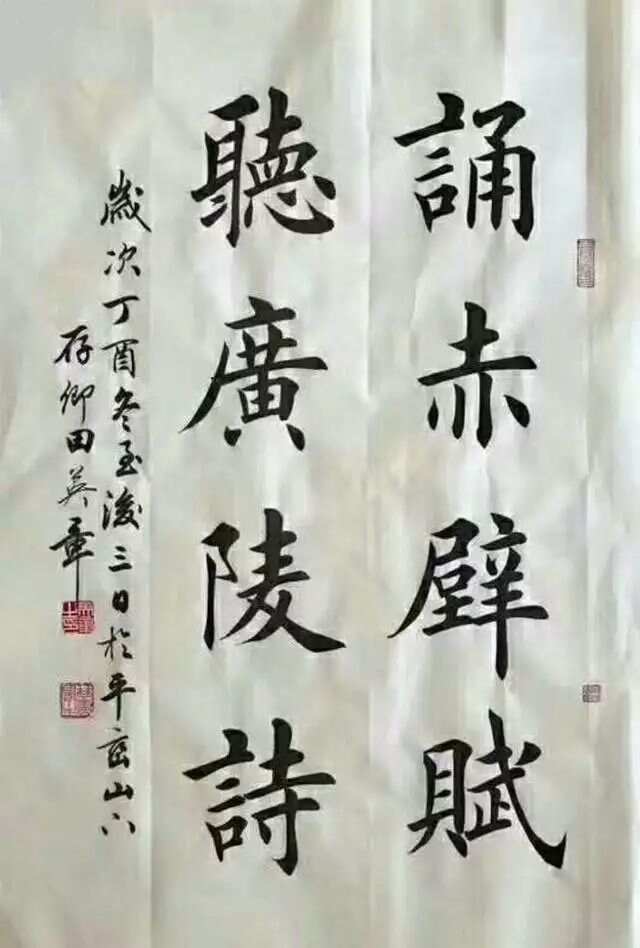 誦赤壁賦
聽廣陵詩
歲次丁酉冬至後三日於平谷山下
存卿田英章